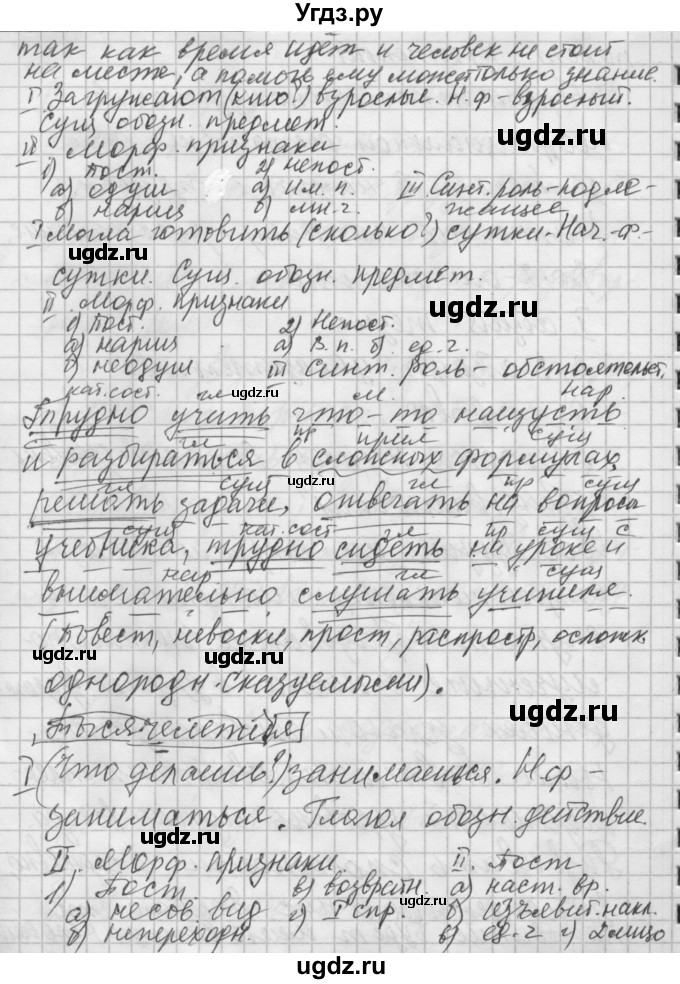 Угдз.ру
так как время идёт и человек не стоит
на месте, а помочь ему может только знание.
I Загружают (кто?) взрослые. Н.ф - взрослый.
Сущ обозн. предмет.
II Морф. признаки
1) Пост. 2) Непост.
а) одуш а) им. п. III Синт. роль - подле-
б) нариц б) мн. ч. жащее
I Могла готовить (сколько?) сутки. Нач. -ф.-
сутки. Сущ. обозн. предмет.
ugdz.ru
II Морф. признаки
1) Пост. 2) Непост.
а) нариц а) В. п. б) ед. ч.
б) неодуш III Синт. роль - обстоятельст.
ugdz.ru ugdz.ru
кат. сост. гл м. нар.
Трудно учить что-то наизусть
гл пр прил сущ
и разбираться в сложных формулах,
ugdz.ru
гл сущ гл пр сущ
решать задачи, отвечать на вопросы
сущ кат. сост гл пр сущ с
учебника, трудно сидеть на уроке и
нар гл сущ
внимательно слушать учителя.
(Повест, невоскл, прост, распростр, осложн
ugdz.ru ugdz.ru
однородн. сказуемыми).
Тысячелетия
ugdz.ru
I (Что делаешь?) занимаешься. Н.ф -
заниматься. Глагол обозн. действие.
ugdz.ru ugdz.ru
II. Морф. признаки II. Пост
1) Пост. в) возвратн. а) наст. вр.
а) несов. вид г) I спр. б) изъявит. накл.
ugdz.ru
б) непереходн. в) ед. ч г) 2 лицо
ugdz.ru